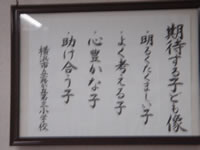 期待する子ども像
・明るくたくましい子
・よく考える子
・心豊かな子
・助け合う子
横浜市立
第三小学校